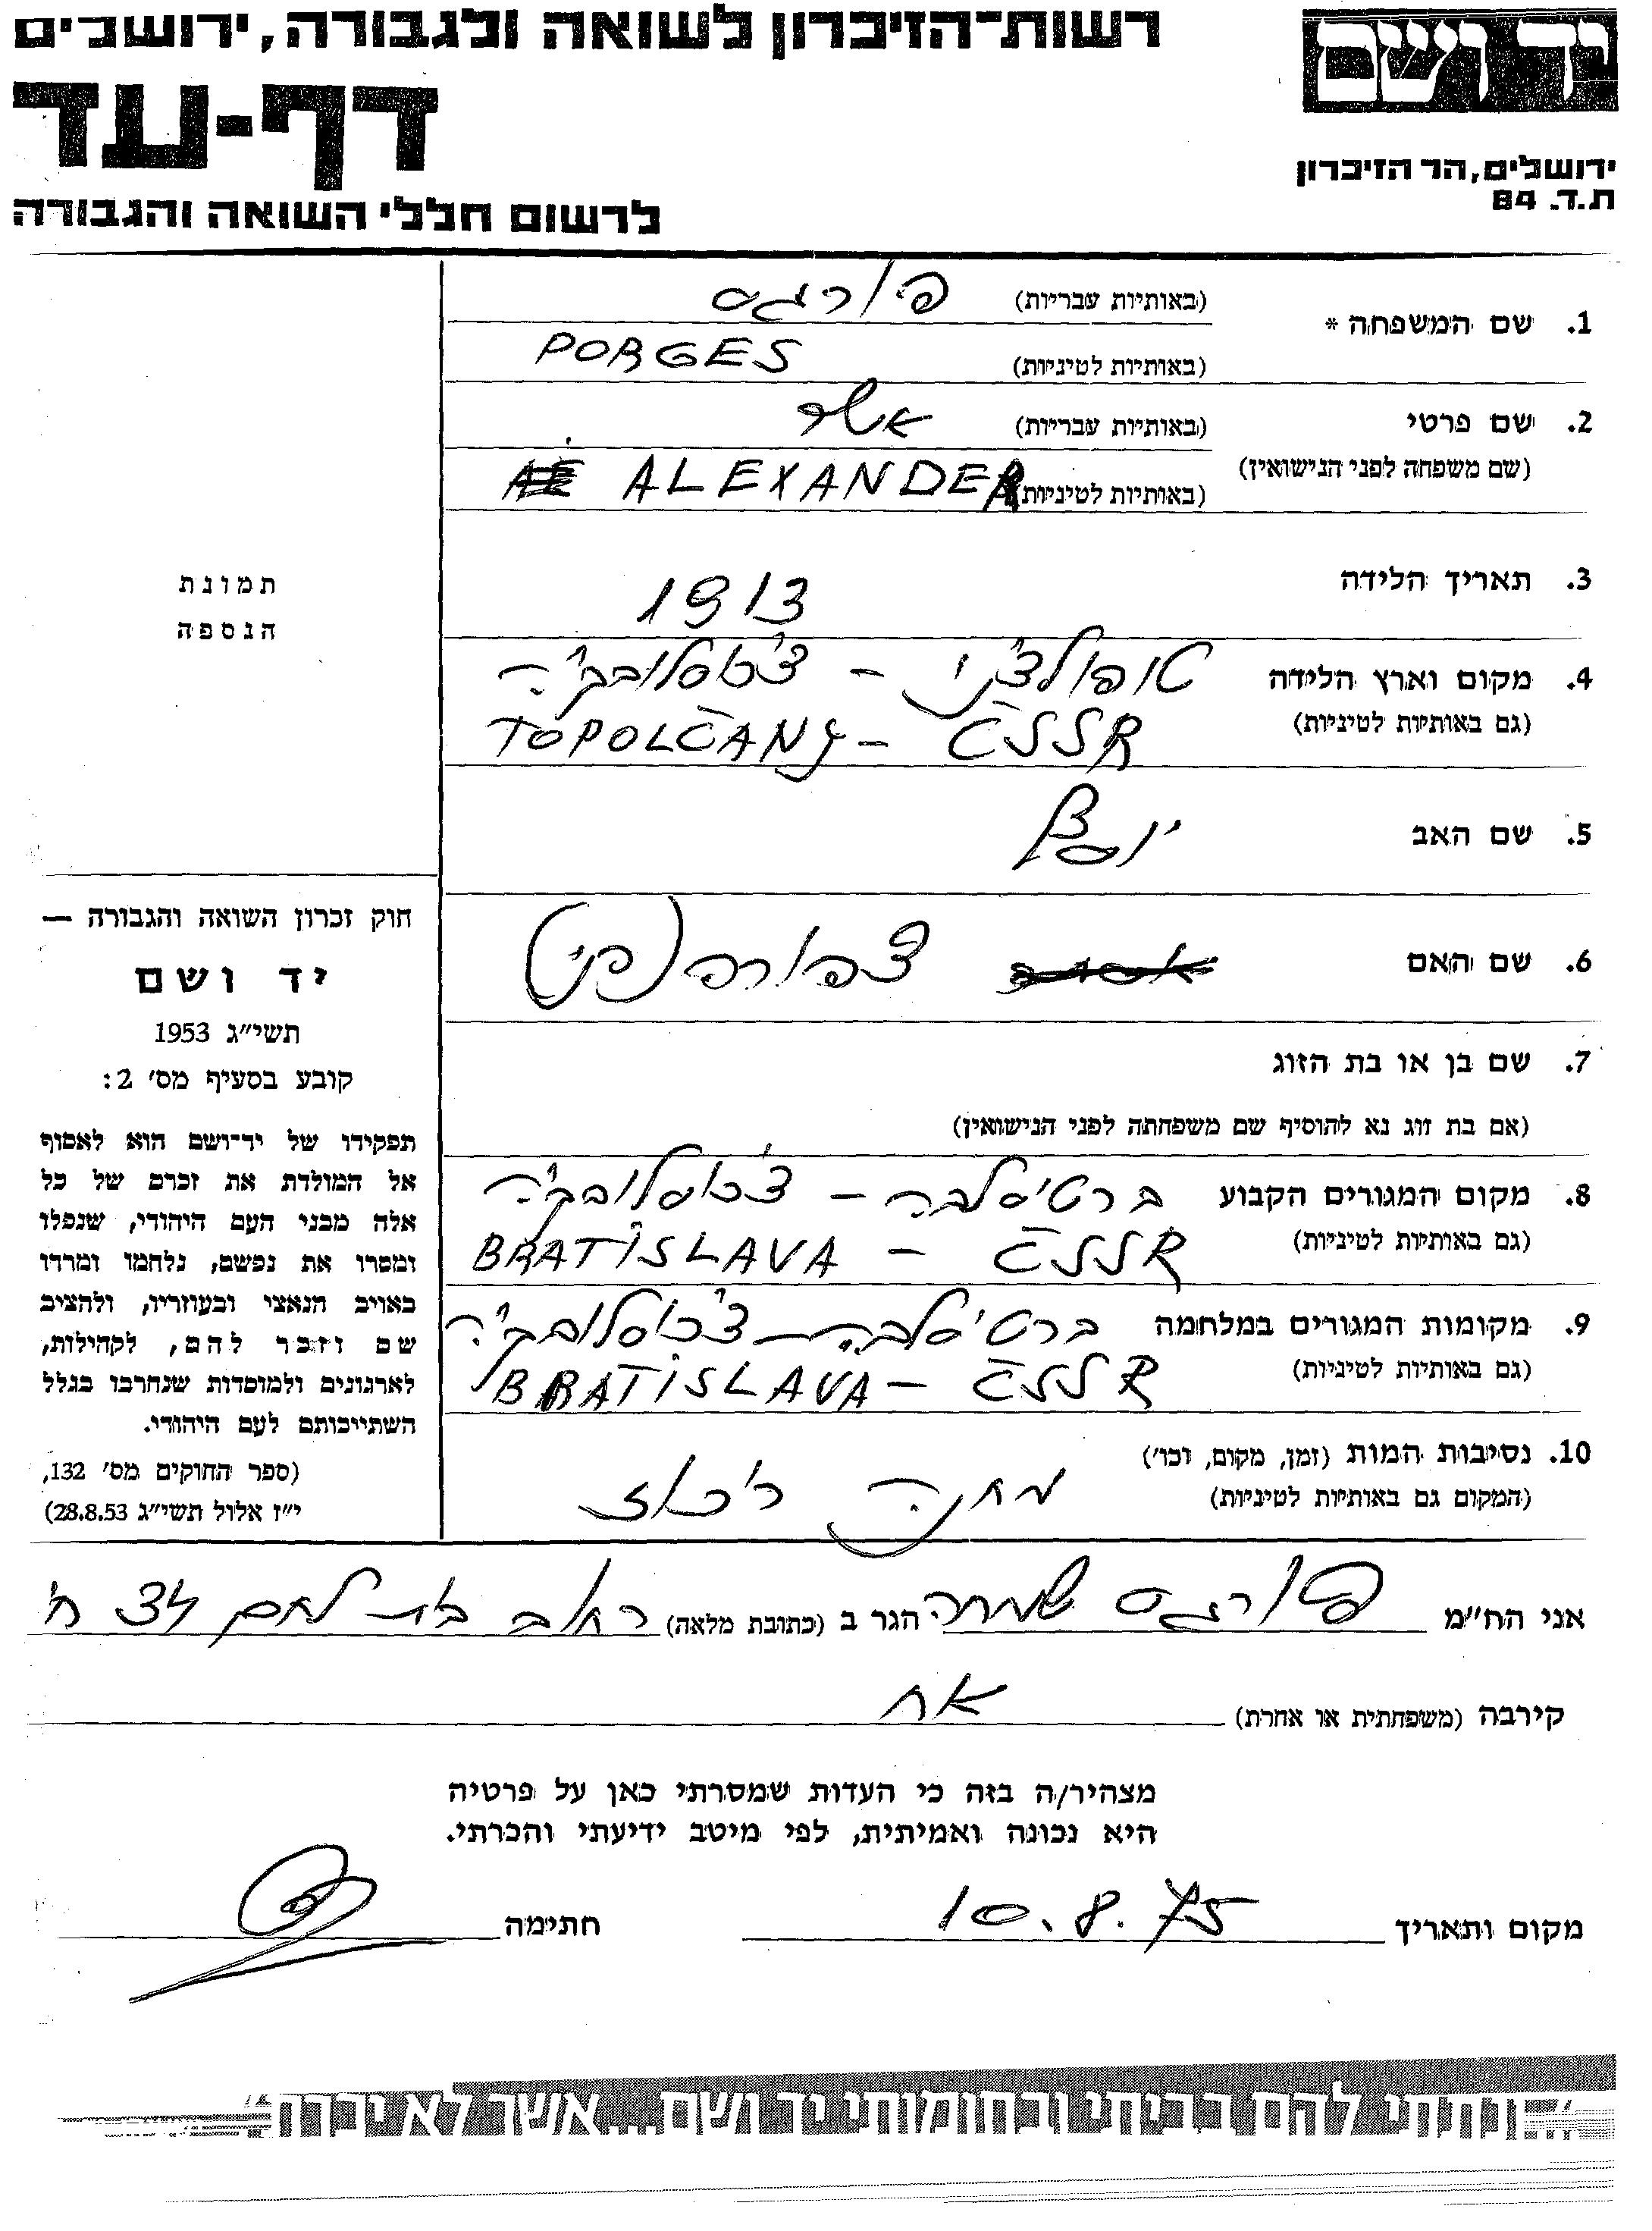 רשות־הזיכרון לשואה ולגבורה, ירושלים
יד ושם
דף-עד
ירושלים, הר הזיכרון
ת.ד. 84
לרשום חללי השואה והגבורה
1. שם המשפחה * (באותיות עבריות) פורגס
(באותיות לטיניות) PORGES
2. שם פרטי (באותיות עבריות) אשר
(שם משפחה לפני הנישואין) (באותיות לטיניות) ALEXANDER
3. תאריך הלידה 1913
4. מקום וארץ הלידה טופולצ'ני - צ'כוסלובקיה
(גם באותיות לטיניות) TOPOLČANY - ČSSR
5. שם האב יוסף
6. שם האם צפורה (פני)
7. שם בן או בת הזוג
(אם בת זוג נא להוסיף שם משפחתה לפני הנישואין)
8. מקום המגורים הקבוע ברטיסלבה - צ'כוסלובקיה
(גם באותיות לטיניות) BRATISLAVA - ČSSR
9. מקומות המגורים במלחמה ברטיסלבה - צ'כוסלובקיה
(גם באותיות לטיניות) BRATISLAVA - ČSSR
10. נסיבות המות (זמן, מקום, וכו')
(המקום גם באותיות לטיניות) מחנה ריכוז
תמונת
הנספה
חוק זכרון השואה והגבורה —
יד ושם
תשי"ג 1953
קובע בסעיף מס' 2:
תפקידו של יד־ושם הוא לאסוף
אל המולדת את זכרם של כל
אלה מבני העם היהודי, שנפלו
ומסרו את נפשם, נלחמו ומרדו
באויב הנאצי ובעוזריו, ולהציב
שם וזכר להם, לקהילות,
לארגונים ולמוסדות שנחרבו בגלל
השתייכותם לעם היהודי.
(ספר החוקים מס' 132,
י"ז אלול תשי"ג 28.8.53)
אני הח"מ פורגס שמחה הגר ב (כתובת מלאה) רחוב בית לחם
קירבה (משפחתית או אחרת) אח
מצהיר/ה בזה כי העדות שמסרתי כאן על פרטיה
היא נכונה ואמיתית, לפי מיטב ידיעתי והכרתי.
מקום ותאריך 10.8.75 חתימה
"...ונתתי להם בביתי ובחומותי יד ושם...אשר לא יכרת"